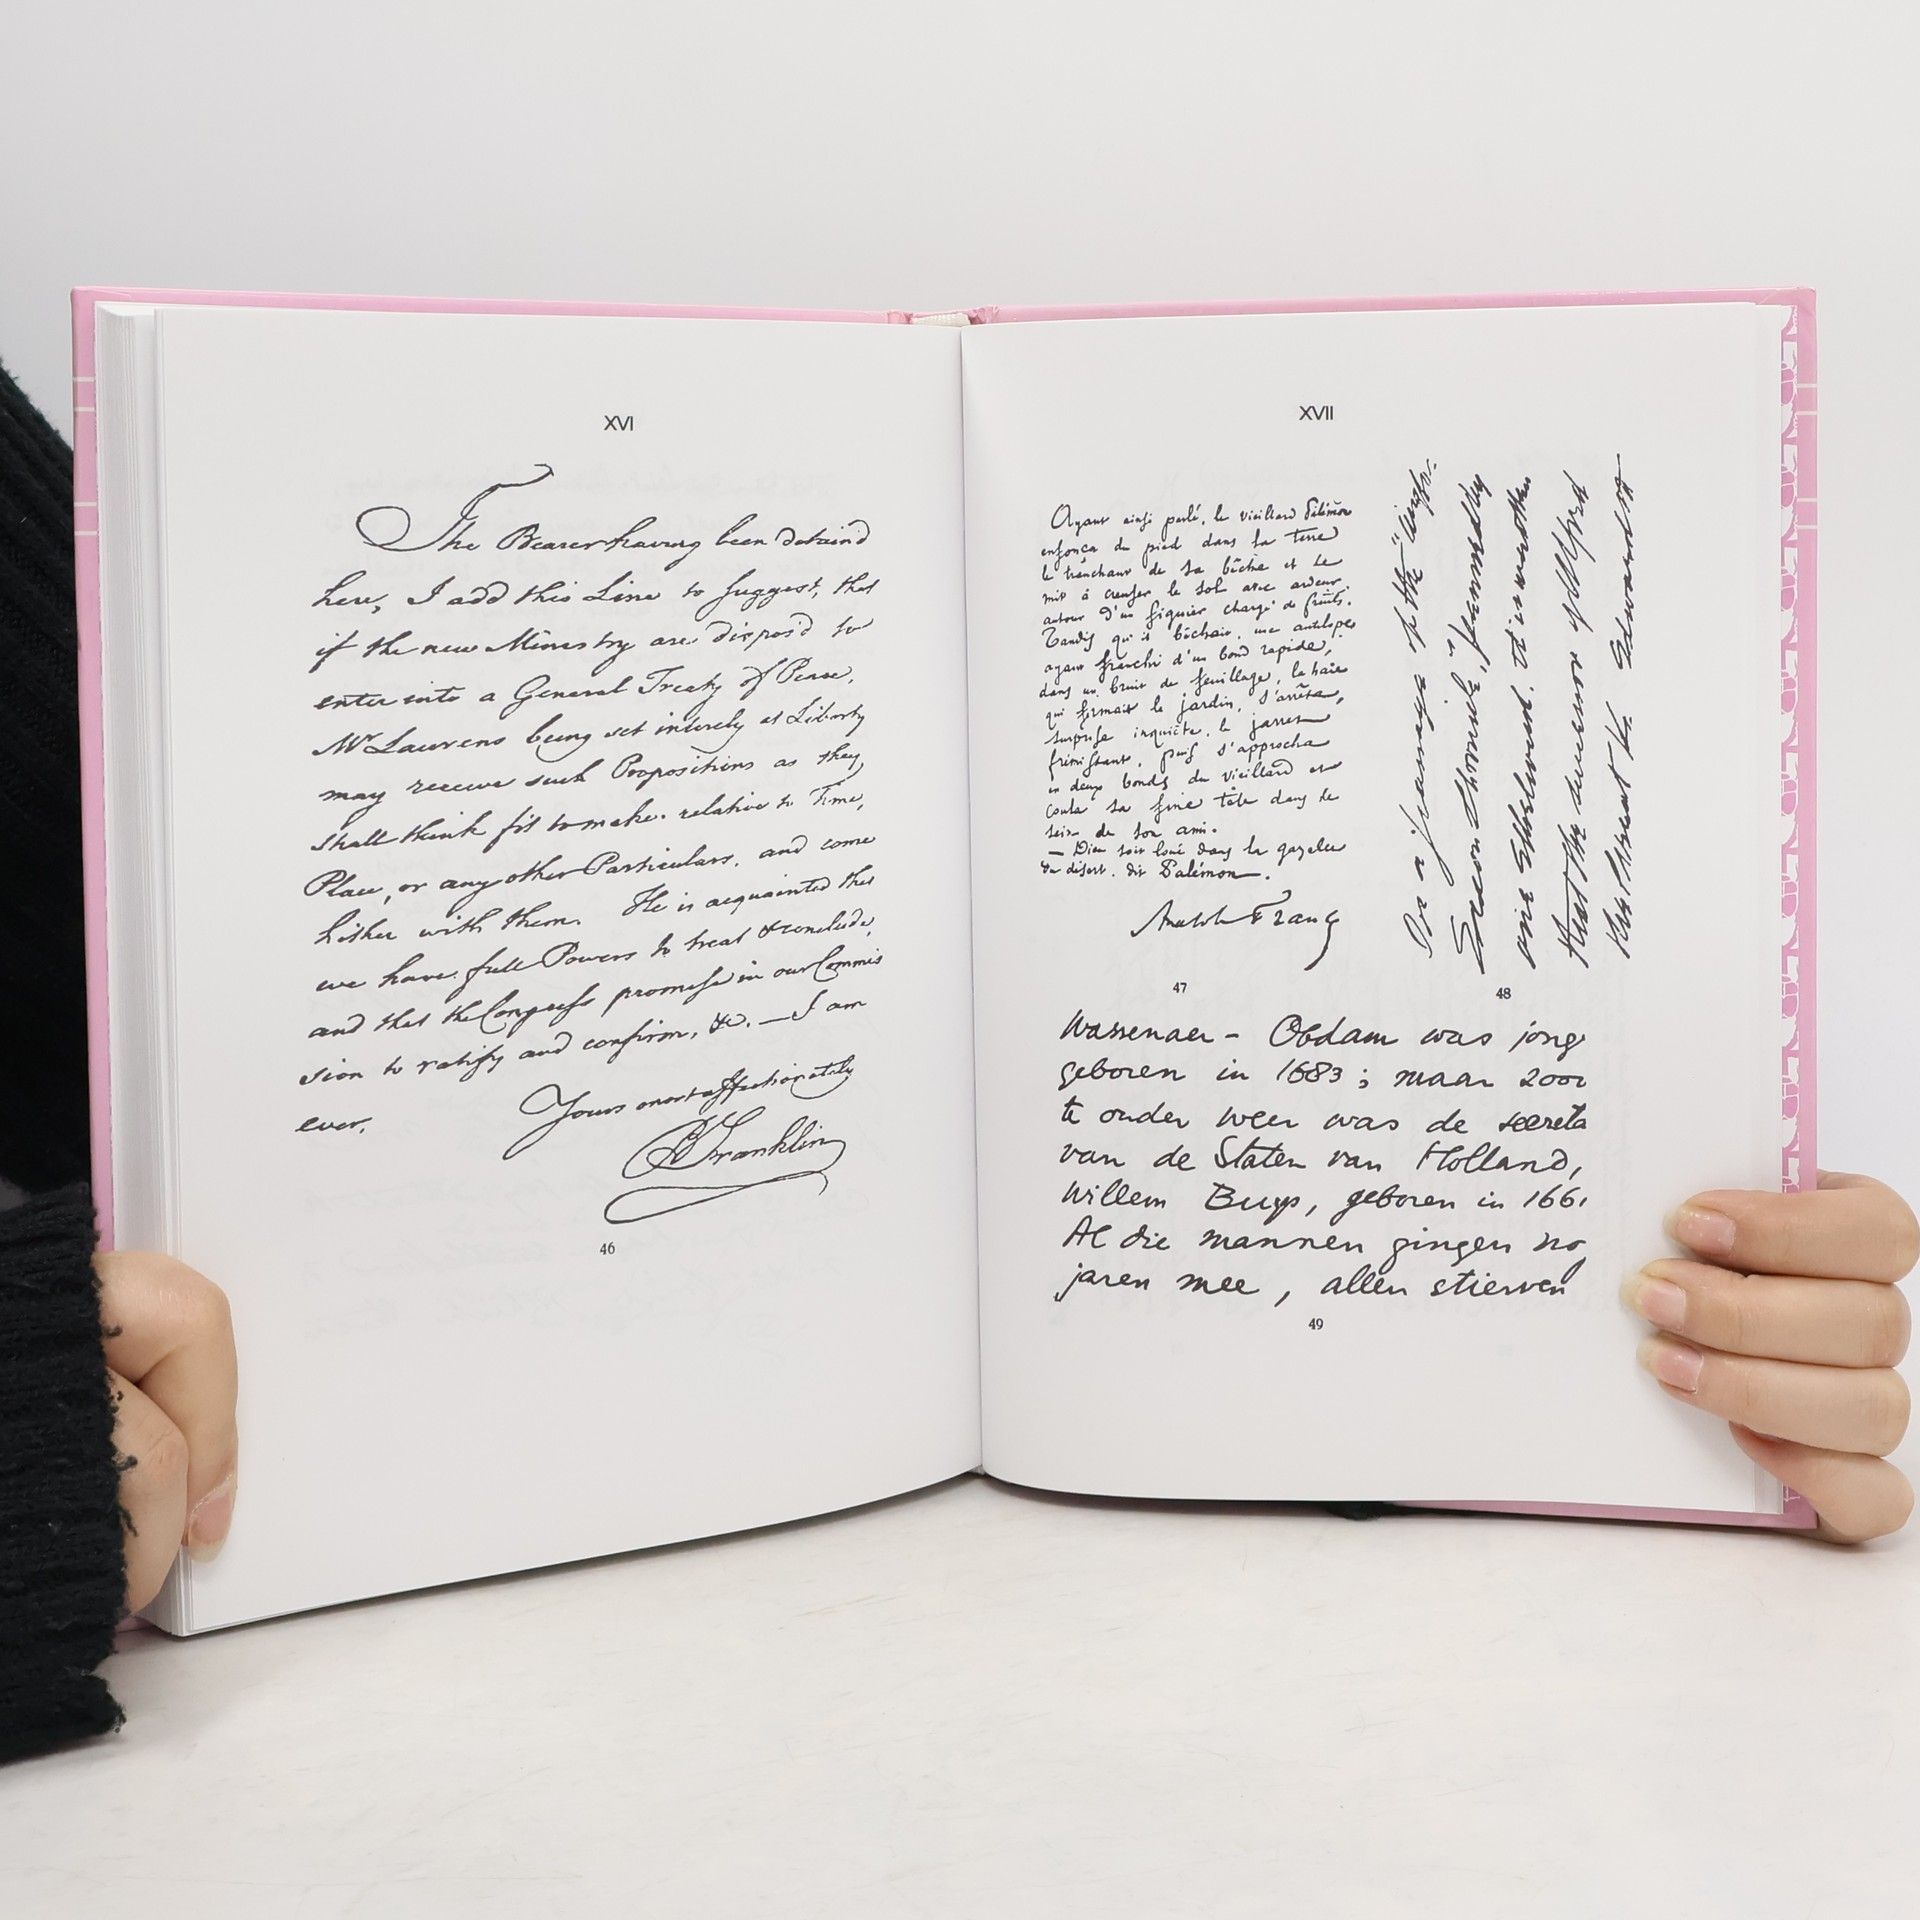 XVI
The Bearer having been detain'd
here, I add this Line to suggest, that
if the new Ministry are dispos'd to
enter into a General Treaty of Peace,
Mr Laurens being set intirely at Liberty
may receive such Propositions as they
shall think fit to make relative to Time,
Place, or any other Particulars, and come
hither with them. He is acquainted that
we have full Powers to treat & conclude,
and that the Congress promise in our Commis
sion to ratify and confirm, &c. — I am
ever,
Yours most affectionately
B Franklin
46
XVII
Ayant ainsi parlé, le vieillard Palémon
enfonça du pied dans la terre
le tranchant de sa bêche et se
mit à creuser le sol avec ardeur
autour d'un figuier chargé de fruits.
Tandis qu'il bêchait, une antilope
ayant franchi d'un bond rapide,
dans un bruit de feuillage, la haie
qui fermait le jardin, s'arrêta,
surprise inquiète, le jarret
frémissant, puis s'approcha
en deux bonds du vieillard et
coula sa fine tête dans le
sein de son ami.
— Dieu soit loué dans la gazelle
du désert, dit Palémon.
Anatole France
47
48
Wassenaer - Obdam was jong
geboren in 1683; maar zoo
te ouder weer was de secreta
van de Staten van Holland,
Willem Buys, geboren in 1661
Al die mannen gingen no
jaren mee, allen stierven
49